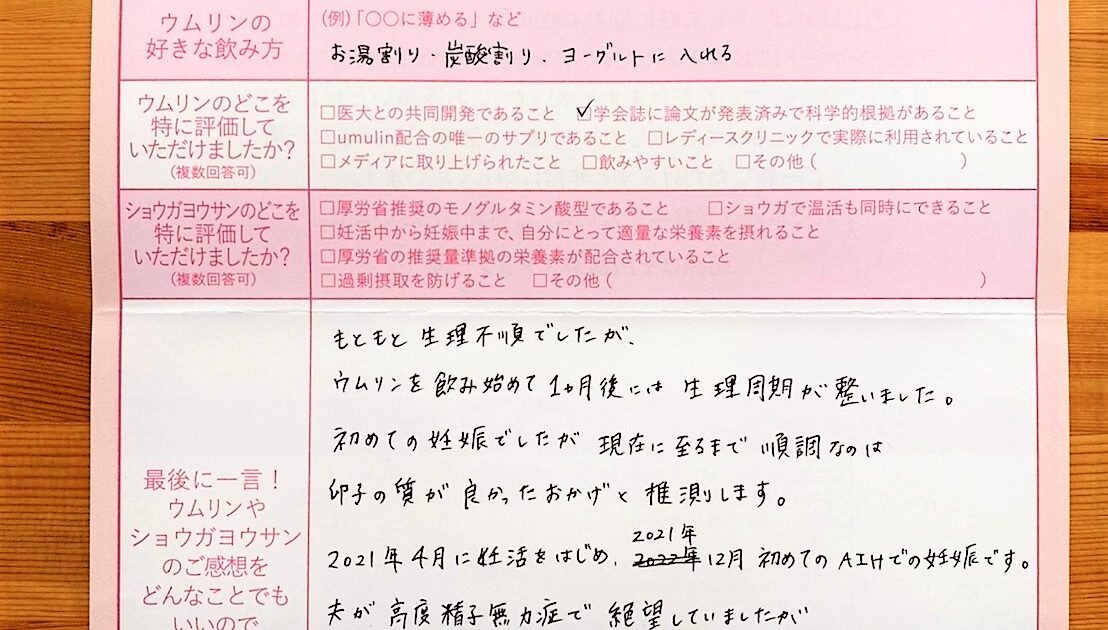 ウムリンの
好きな飲み方
(例)「〇〇に薄める」など
お湯割り・炭酸割り・ヨーグルトに入れる
ウムリンのどこを
特に評価して
いただけましたか?
(複数回答可)
□医大との共同開発であること ☑学会誌に論文が発表済みで科学的根拠があること
□umulin配合の唯一のサプリであること □レディースクリニックで実際に利用されていること
□メディアに取り上げられたこと □飲みやすいこと □その他( )
ショウガヨウサンのどこを
特に評価して
いただけましたか?
(複数回答可)
□厚労省推奨のモノグルタミン酸型であること □ショウガで温活も同時にできること
□妊活中から妊娠中まで、自分にとって適量な栄養素を摂れること
□厚労省の推奨量準拠の栄養素が配合されていること
□過剰摂取を防げること □その他( )
最後に一言!
ウムリンや
ショウガヨウサン
のご感想を
どんなことでも
いいので
もともと生理不順でしたが、
ウムリンを飲み始めて1ヵ月後には生理周期が整いました。
初めての妊娠でしたが現在に至るまで順調なのは
卵子の質が良かったおかげと推測します。
2021年
2021年4月に妊活をはじめ、2022年12月初めてのAIHでの妊娠です。
夫が高度精子無力症で絶望していましたが